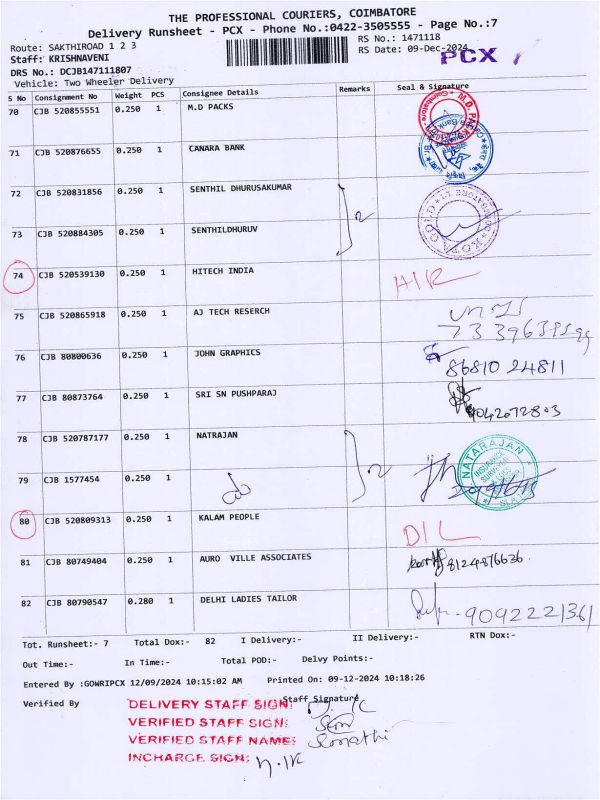 THE PROFESSIONAL COURIERS, COIMBATORE
Delivery Runsheet - PCX - Phone No.:0422-3505555 - Page No.:7
Route: SAKTHIROAD 1 2 3
RS No.: 1471118
Staff: KRISHNAVENI
RS Date: 09-Dec-2024
PCX
DRS No.: DCJB147111807
Vehicle: Two Wheeler Delivery
S No Consignment No Weight PCS Consignee Details Remarks Seal & Signature
70 CJB 520855551 0.250 1 M.D PACKS
71 CJB 520876655 0.250 1 CANARA BANK
72 CJB 520831856 0.250 1 SENTHIL DHURUSAKUMAR
73 CJB 520884305 0.250 1 SENTHILDHURUV
74 CJB 520539130 0.250 1 HITECH INDIA
75 CJB 520865918 0.250 1 AJ TECH RESERCH
76 CJB 80800636 0.250 1 JOHN GRAPHICS
86810 24811
77 CJB 80873764 0.250 1 SRI SN PUSHPARAJ
9042072803
78 CJB 520787177 0.250 1 NATRAJAN
NATARAJAN
INSURANCE
SURVEYOR
79 CJB 1577454 0.250 1
80 CJB 520809313 0.250 1 KALAM PEOPLE
D/L
81 CJB 80749404 0.250 1 AURO VILLE ASSOCIATES
8124876636
82 CJB 80790547 0.280 1 DELHI LADIES TAILOR
9092221361
Tot. Runsheet:- 7 Total Dox:- 82 I Delivery:- II Delivery:- RTN Dox:-
Out Time:- In Time:- Total POD:- Delvy Points:-
Entered By :GOWRIPCX 12/09/2024 10:15:02 AM Printed On: 09-12-2024 10:18:26
Verified By Staff Signature
DELIVERY STAFF SIGN:
VERIFIED STAFF SIGN:
VERIFIED STAFF NAME:
INCHARGE SIGN: